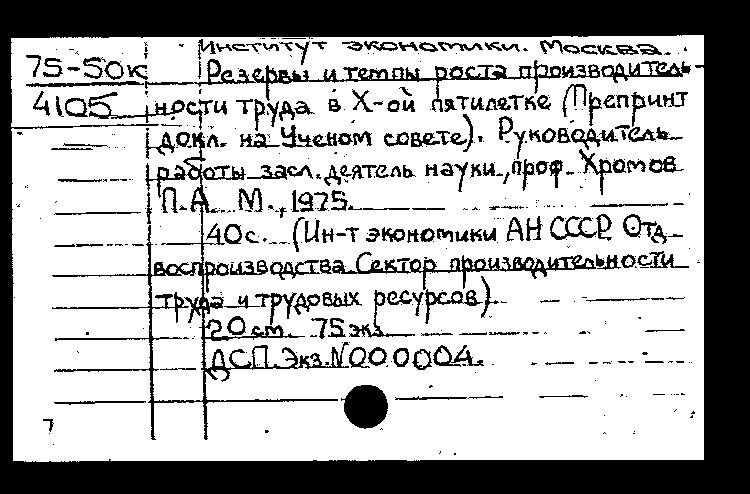 Институт экономики. Москва.
75-50к Резервы и темпы роста производитель-
4105 ности труда в X-ой пятилетке (Препринт
докл. на Ученом совете). Руководитель
работы засл. деятель науки, проф. Хромов
П.А. М., 1975.
40с. (Ин-т экономики АН СССР. Отд
воспроизводства Сектор производительности
труда и трудовых ресурсов).
20 см. 75 экз.
ДСП. Экз. N000004.
7